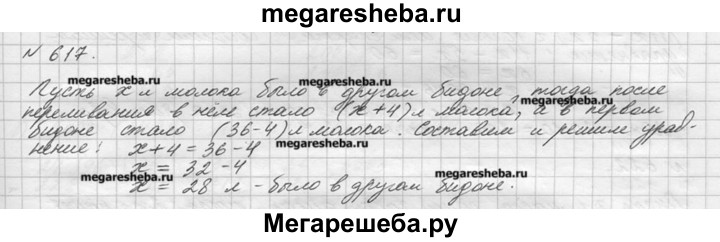 megaresheba.ru
N 617.
megaresheba.ru megaresheba.ru
Пусть x л молока было в другом бидоне, тогда после
переливания в нём стало (x+4) л молока, а в первом
бидоне стало (36-4) л молока. Составим и решим урав-
нение: x+4=36-4
megaresheba.ru megaresheba.ru
x = 32-4
x = 28 л - было в другом бидоне.
megaresheba.ru megaresheba.ru
Мегарешеба.ру